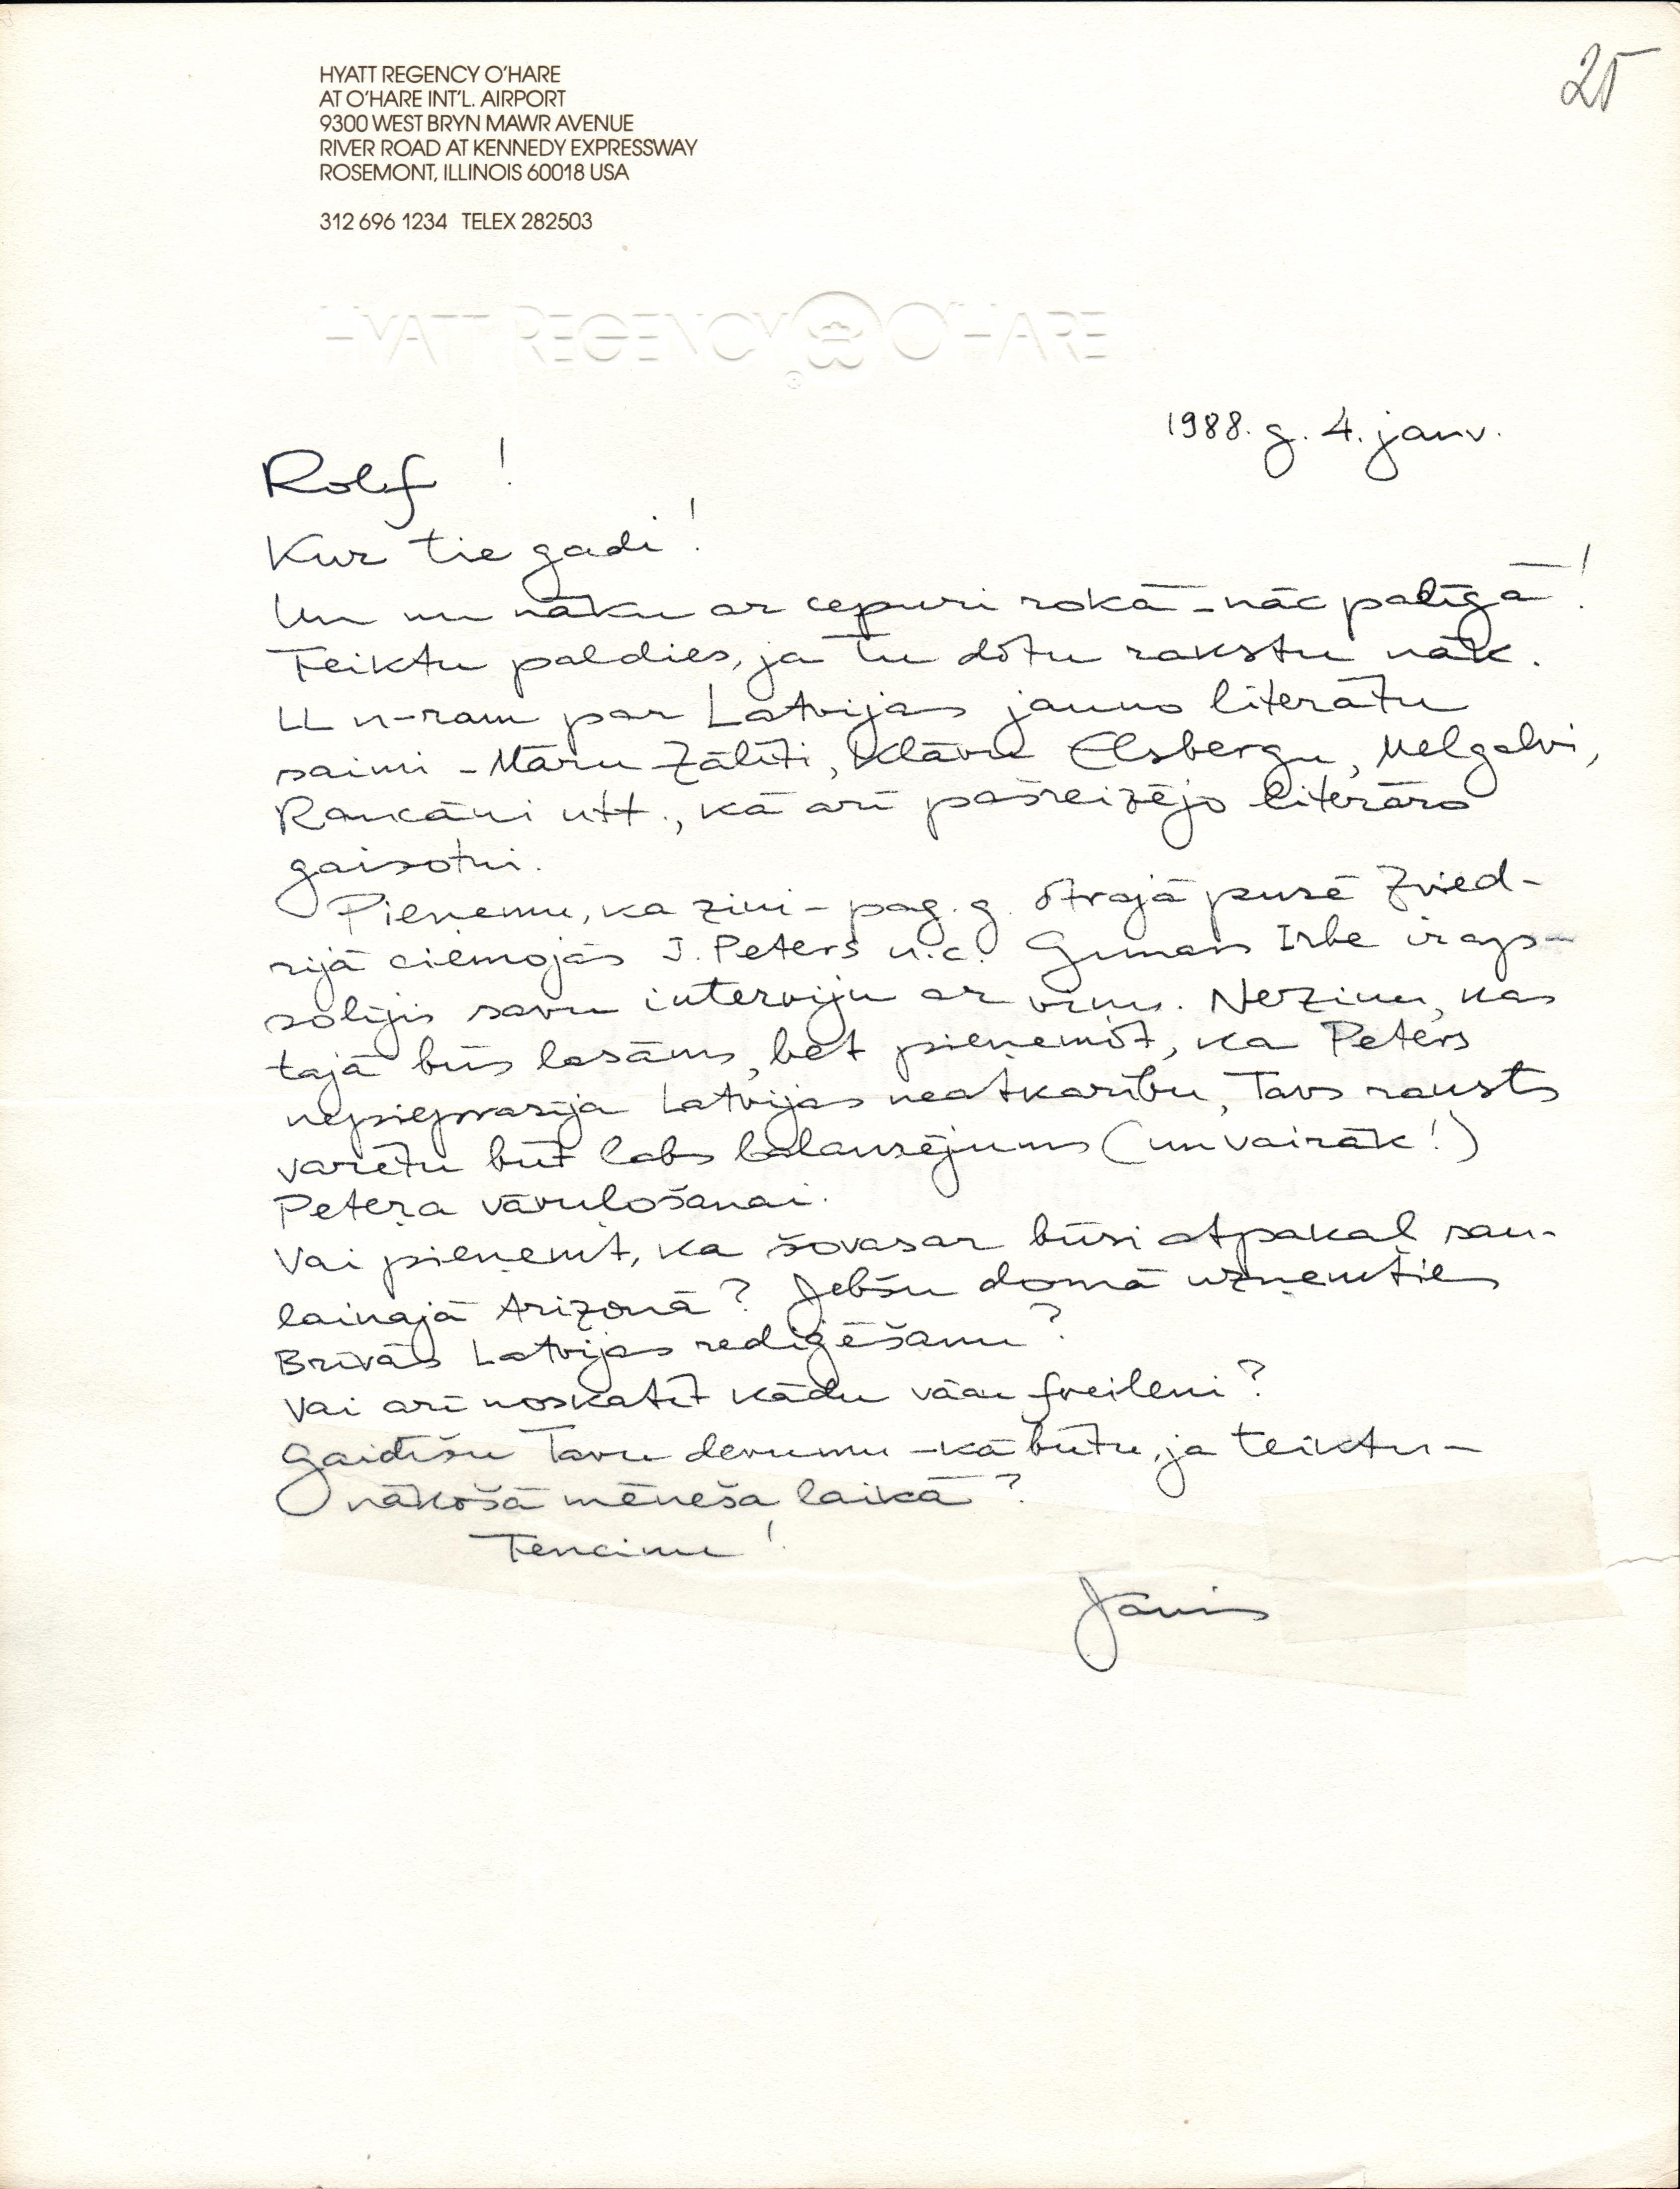 25
HYATT REGENCY O'HARE
AT O'HARE INT'L. AIRPORT
9300 WEST BRYN MAWR AVENUE
RIVER ROAD AT KENNEDY EXPRESSWAY
ROSEMONT, ILLINOIS 60018 USA
312 696 1234 TELEX 282503
HYATT REGENCY O'HARE
1988. g. 4. janv.
Rolf !
Kur tie gadi !
Un nu nāku ar cepuri rokā – nāc palīgā !
Teiktu paldies, ja Tu dotu rakstu nāk.
LL n-ram par Latvijas jauno literātu
saimi – Māru Zālīti, Klāvu Elsbergu, Melgalvi,
Rancāni utt., kā arī pašreizējo literāro
gaisotni.
Pieņemu, ka zini – pag. g. otrajā pusē Zvied-
rijā ciemojās J. Peters u.c. Gunars Irbe ir aps-
solījis savu interviju ar viņu. Nezinu, kas
tajā būs lasāms, bet pieņemot, ka Peters
nepieprasīja Latvijas neatkarību, Tavs raksts
varētu būt labs balansējums (un vairāk!)
Petera vāvuļošanai.
Vai pieņemt, ka šovasar būsi atpakaļ sau-
lainajā Arizonā? Jebšu domā uzņemties
Brīvās Latvijas rediģēšanu?
Vai arī noskatīt kādu vāču freileni?
Gaidīšu Tavu devumu – kā būtu, ja teiktu –
nākošā mēneša laikā ?
Tencinu !
Jānis